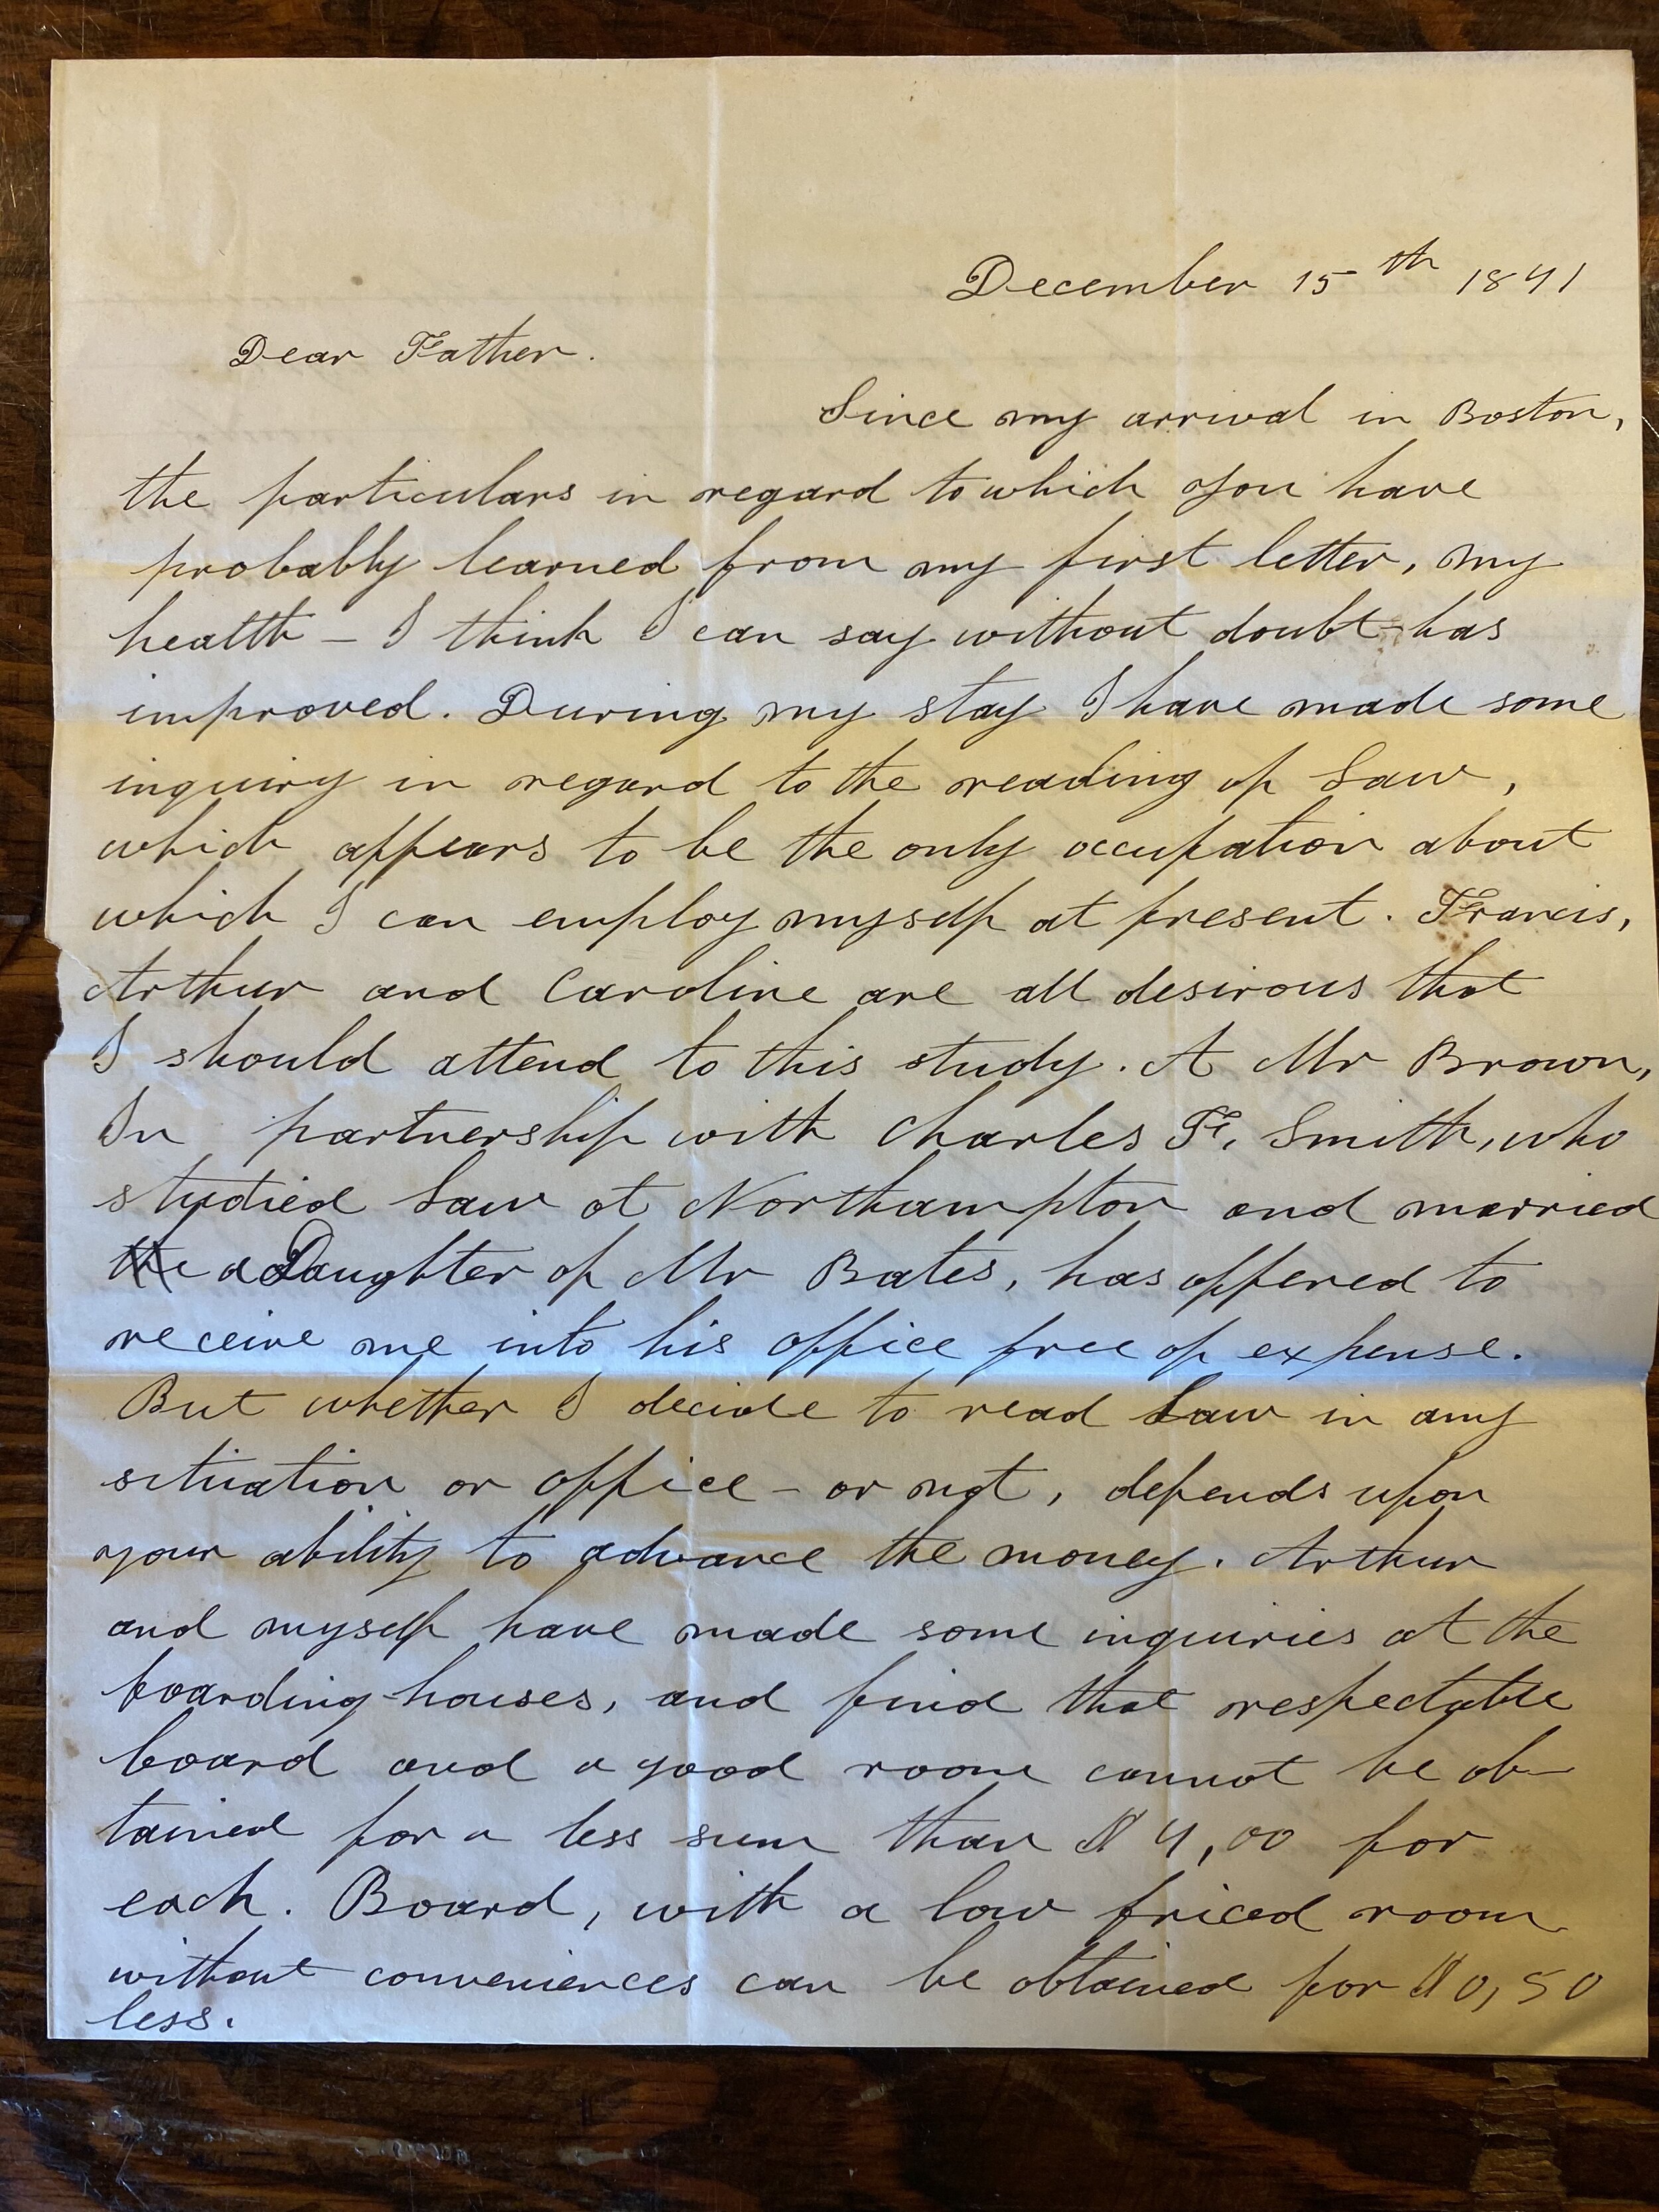 December 15th 1841
Dear Father.
Since my arrival in Boston,
the particulars in regard to which you have
probably learned from my first letter, my
health – I think I can say without doubt – has
improved. During my stay I have made some
inquiry in regard to the reading of Law,
which appears to be the only occupation about
which I can employ myself at present. Francis,
Arthur and Caroline are all desirous that
I should attend to this study. A Mr Brown,
In partnership with Charles F. Smith, who
studied Law at Northampton and married
the a Daughter of Mr Bates, has offered to
receive me into his office free of expense.
But whether I decide to read Law in any
situation or office – or not, depends upon
your ability to advance the money. Arthur
and myself have made some inquiries at the
boarding-houses, and find that respectable
board and a good room cannot be ob-
tained for a less sum than $4,00 for
each. Board, with a low priced room
without conveniences can be obtained for $0,50
less.